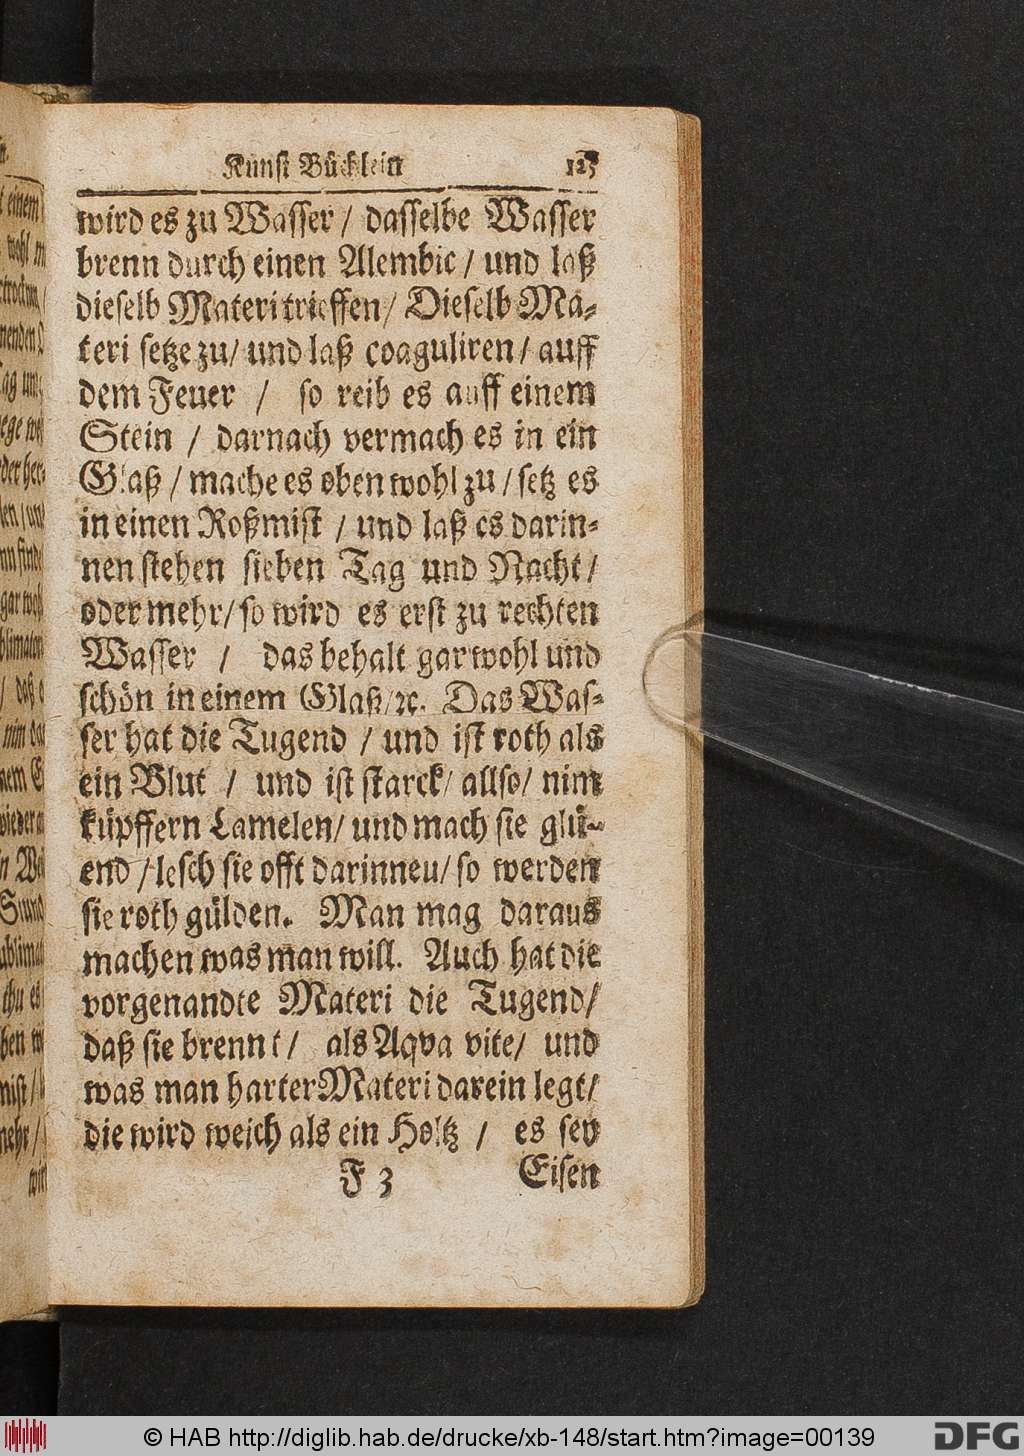 Kunst Bücklein 125
wird es zu Wasser / dasselbe Wasser
brenn durch einen Alembic / und laß
dieselb Materi trieffen / Dieselb Ma-
teri setze zu / und laß coaguliren / auff
dem Feuer / so reib es auff einem
Stein / darnach vermach es in ein
Glaß / mache es oben wohl zu / setz es
in einen Roßmist / und laß es darin-
nen stehen sieben Tag und Nacht /
oder mehr / so wird es erst zu rechten
Wasser / das behalt gar wohl und
schön in einem Glaß / ꝛc. Das Was-
ser hat die Tugend / und ist roth als
ein Blut / und ist starck / allso / nim
küpffern Lamelen / und mach sie glü-
end / lesch sie offt darinneu / so werden
sie roth gülden. Man mag daraus
machen was man will. Auch hat die
vorgenandte Materi die Tugend /
daß sie brennt / als Aqva vite / und
was man harter Materi darein legt /
die wird weich als ein Holtz / es sey
F 3 Eisen
© HAB http://diglib.hab.de/drucke/xb-148/start.htm?image=00139
DFG